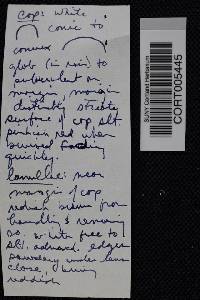 Cap: White
conic to
convex
glob (in rain) to
pubescent on
margin margin
distinctly striate
surface of cap slt.
pinkish red when
bruised fading
quickly.
Lamellae: near
margin of cap
reddish brown from
handling & remaining
so. white free to
slt. adnexed. edges
powdery under lens
close, bruising
reddish
SUNY Cortland Herbarium
CORT005445